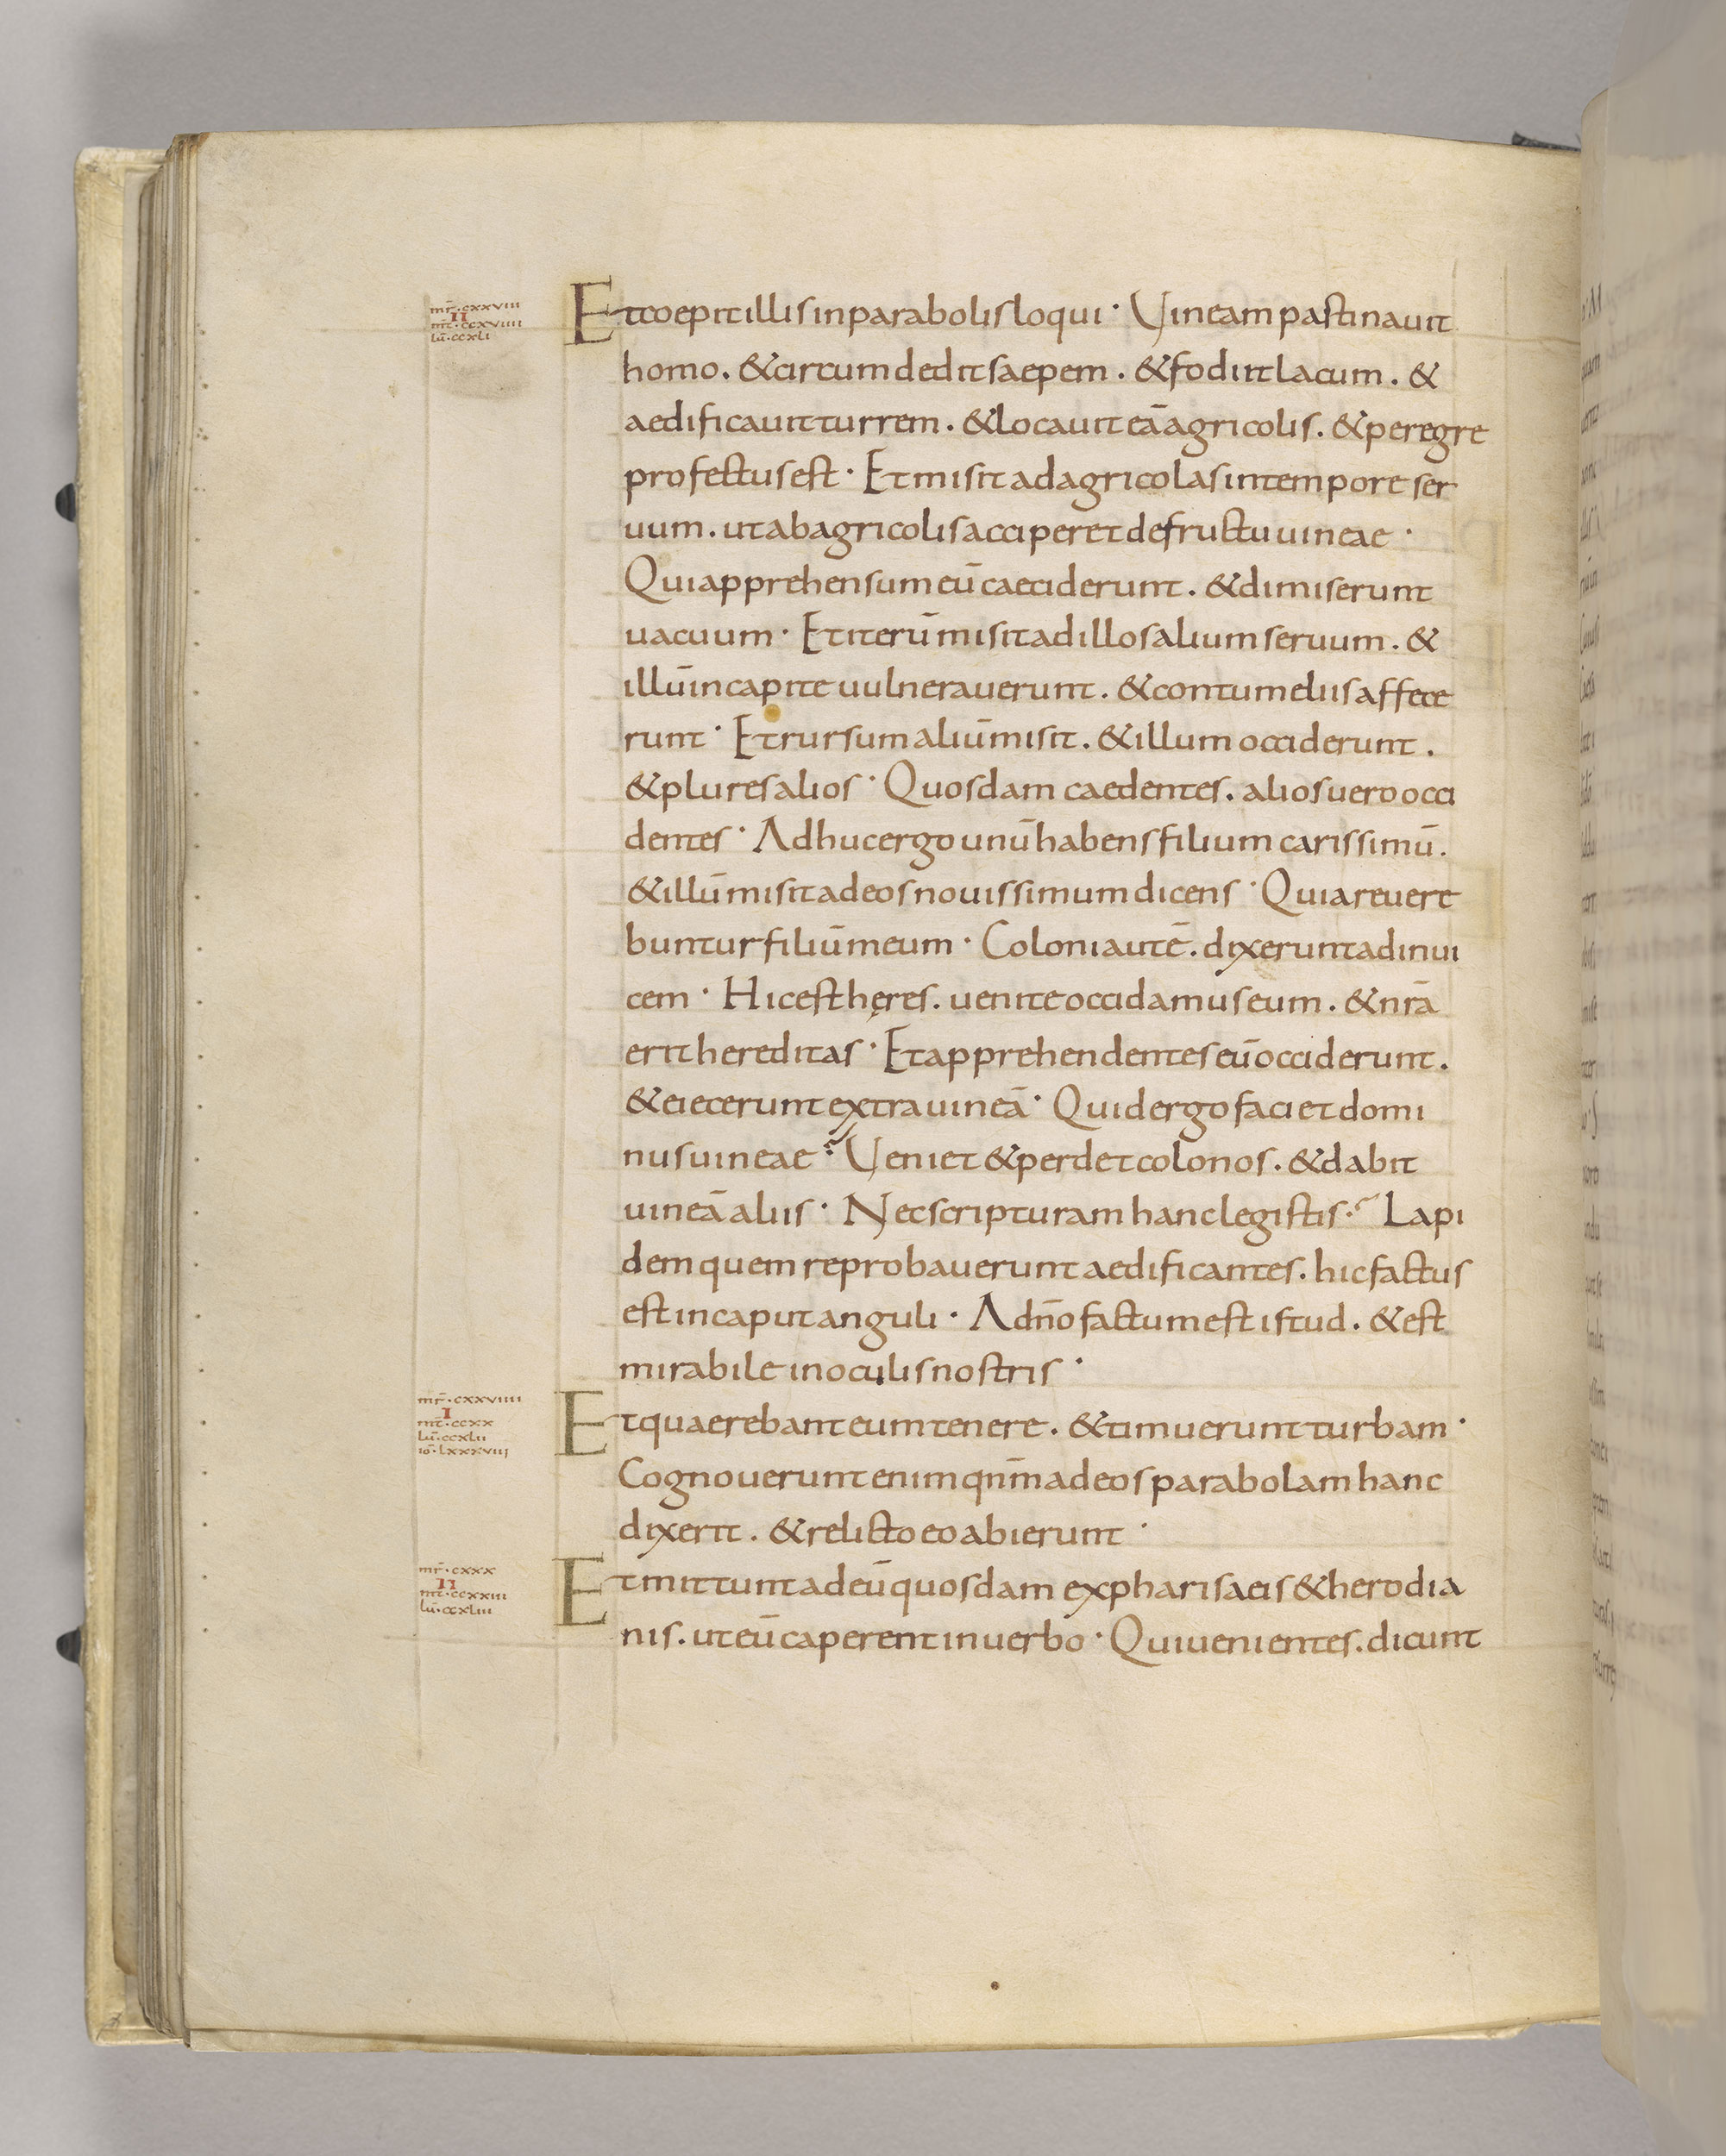 mr̄·cxxviii
II
mt̄·ccxviiii
lū·ccxli
Et coepit illis in parabolis loqui· Vineam pastinauit
homo. & circumdedit saepem. & fodiit lacum. &
aedificauit turrem. & locauit eā agricolis. & peregre
profectus est· Et misit ad agricolas in tempore ser
uum. ut ab agricolis acciperet de fructu uineae·
Qui apprehensum eū caeciderunt. & dimiserunt
uacuum· Et iterū misit ad illos alium seruum. &
illū in capite uulnerauerunt. & contumeliis affece
runt· Et rursum aliū misit. & illum occiderunt.
& plures alios· Quosdam caedentes. alios uero occi
dentes· Adhuc ergo unū habens filium carissimū.
& illū misit ad eos nouissimum dicens· Quia reuere
buntur filiū meum· Coloni autē. dixerunt ad inui
cem· Hic est heres. uenite occidamus eum. & nr̄a
erit hereditas· Et apprehendentes eū occiderunt.
& eiecerunt extra uineā· Quid ergo faciet domi
nus uineae? Veniet & perdet colonos. & dabit
uineā aliis· Nec scripturam hanc legistis? Lapi
dem quem reprobauerunt aedificantes. hic factus
est in caput anguli· A dn̄o factum est istud. & est
mirabile in oculis nostris·
mr̄·cxxviiii
I
mt̄·ccxx
lū·ccxlii
io·lxxxviii
Et quaerebant eum tenere. & timuerunt turbam·
Cognouerunt enim qn̄m ad eos parabolam hanc
dixerit. & relicto eo abierunt·
mr̄·cxxx
II
mt̄·ccxxiii
lū·ccxliii
Et mittunt ad eū quosdam ex pharisaeis & herodia
nis. ut eū caperent in uerbo· Qui uenientes. dicunt